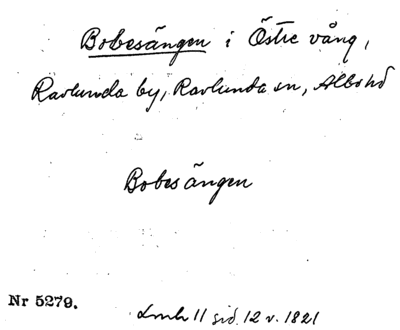 Bobesängen i Östre vång,
Ravlunda by, Ravlunda sn, Albo hd
Bobesängen
Nr 5279.
Lmh 11 sid. 12 v. 1821